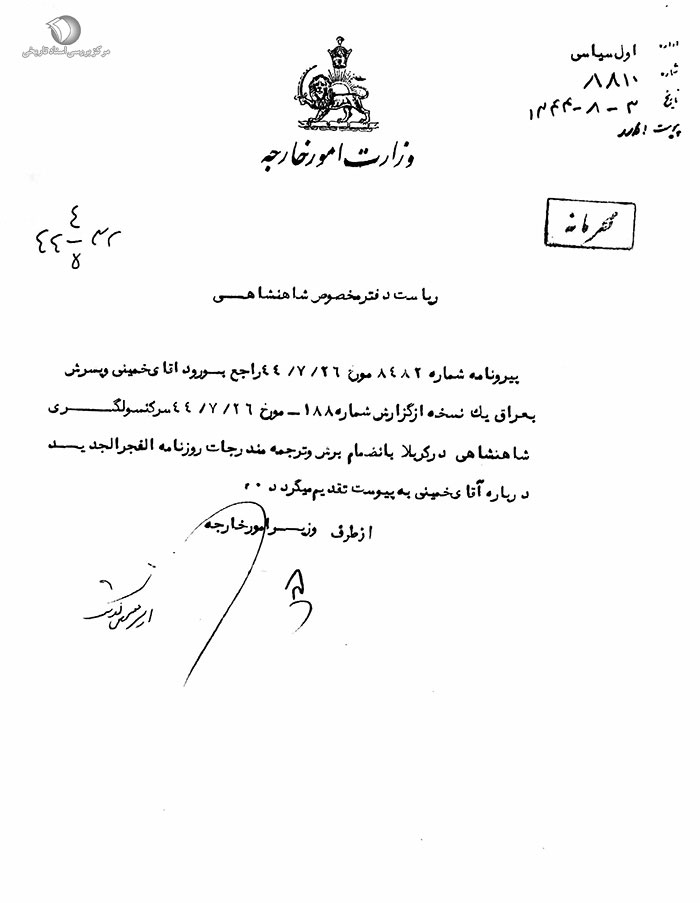 مرکز بررسی اسناد تاریخی
اداره اول سیاسی
شماره ۸۸۱۰
تاریخ ۳-۸-۱۳۴۴
پیوست
وزارت امور خارجه
محرمانه
ریاست دفتر مخصوص شاهنشاهی
پیرو نامه شماره ۸۴۸۲ مورخ ۴۴/۷/۲۶ راجع بورود آقای خمینی و پسرش
بعراق یک نسخه از گزارش شماره ۱۸۸ـ مورخ ۴۴/۷/۲۶ سرکنسولگری
شاهنشاهی در کربلا بانضمام برش و ترجمه مندرجات روزنامه الفجر الجدید
درباره آقای خمینی به پیوست تقدیم میگردد ۰۰
از طرف وزیر امور خارجه